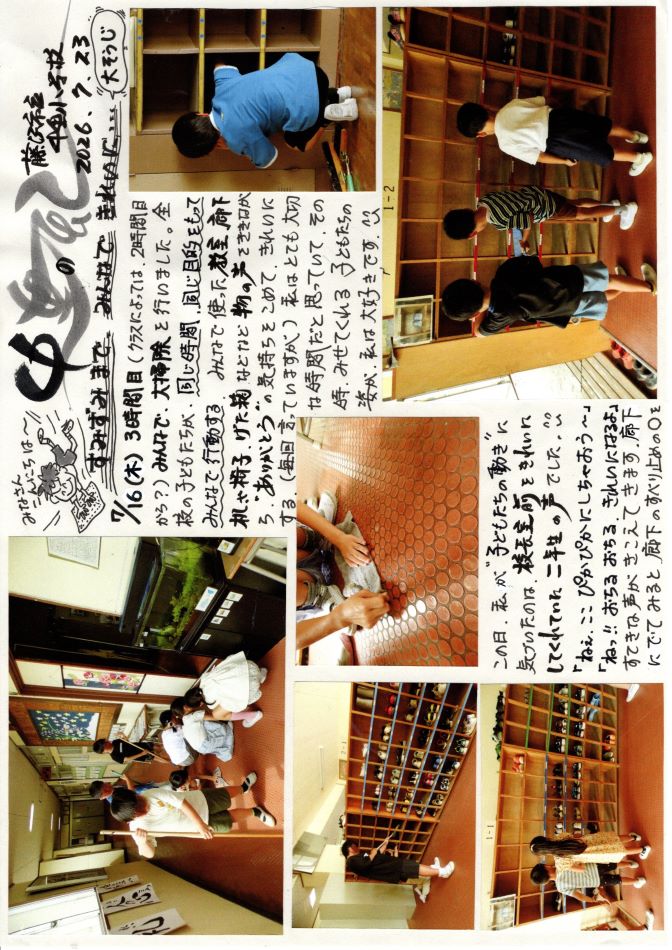 藤沢市立
中里小学校
2026.7.23
大そうじ
すみずみまで みんなで きれいに…
みなさん
こんにちは～
7/16(木) 3時間目(クラスによっては、2時間目
から?) みんなで、大掃除を行いました。全
校の子どもたちが、同じ時間、同じ目的をもって
みんなで行動する、みんなで使った教室、廊下
机や椅子、げた箱などなど物の声をききなが
ら"ありがとう"の気持ちをこめて、きれいに
する (毎回言っていますが、) 私はとても大切
な時間だと思っていて、その
時、みせてくれる子どもたちの
姿が、私は大好きです。
この日、私が"子どもたちの動き"に
気づいたのは、校長室前をきれいに
してくれていた二年生の声でした。
「ねぇ、ここぴかぴかにしちゃおう～」
「ねっ!! おちる、おちる、きれいになるよ」
すてきな声がきこえてきます。廊下
にでてみると、廊下のすべり止めの○を
1-2
1-1